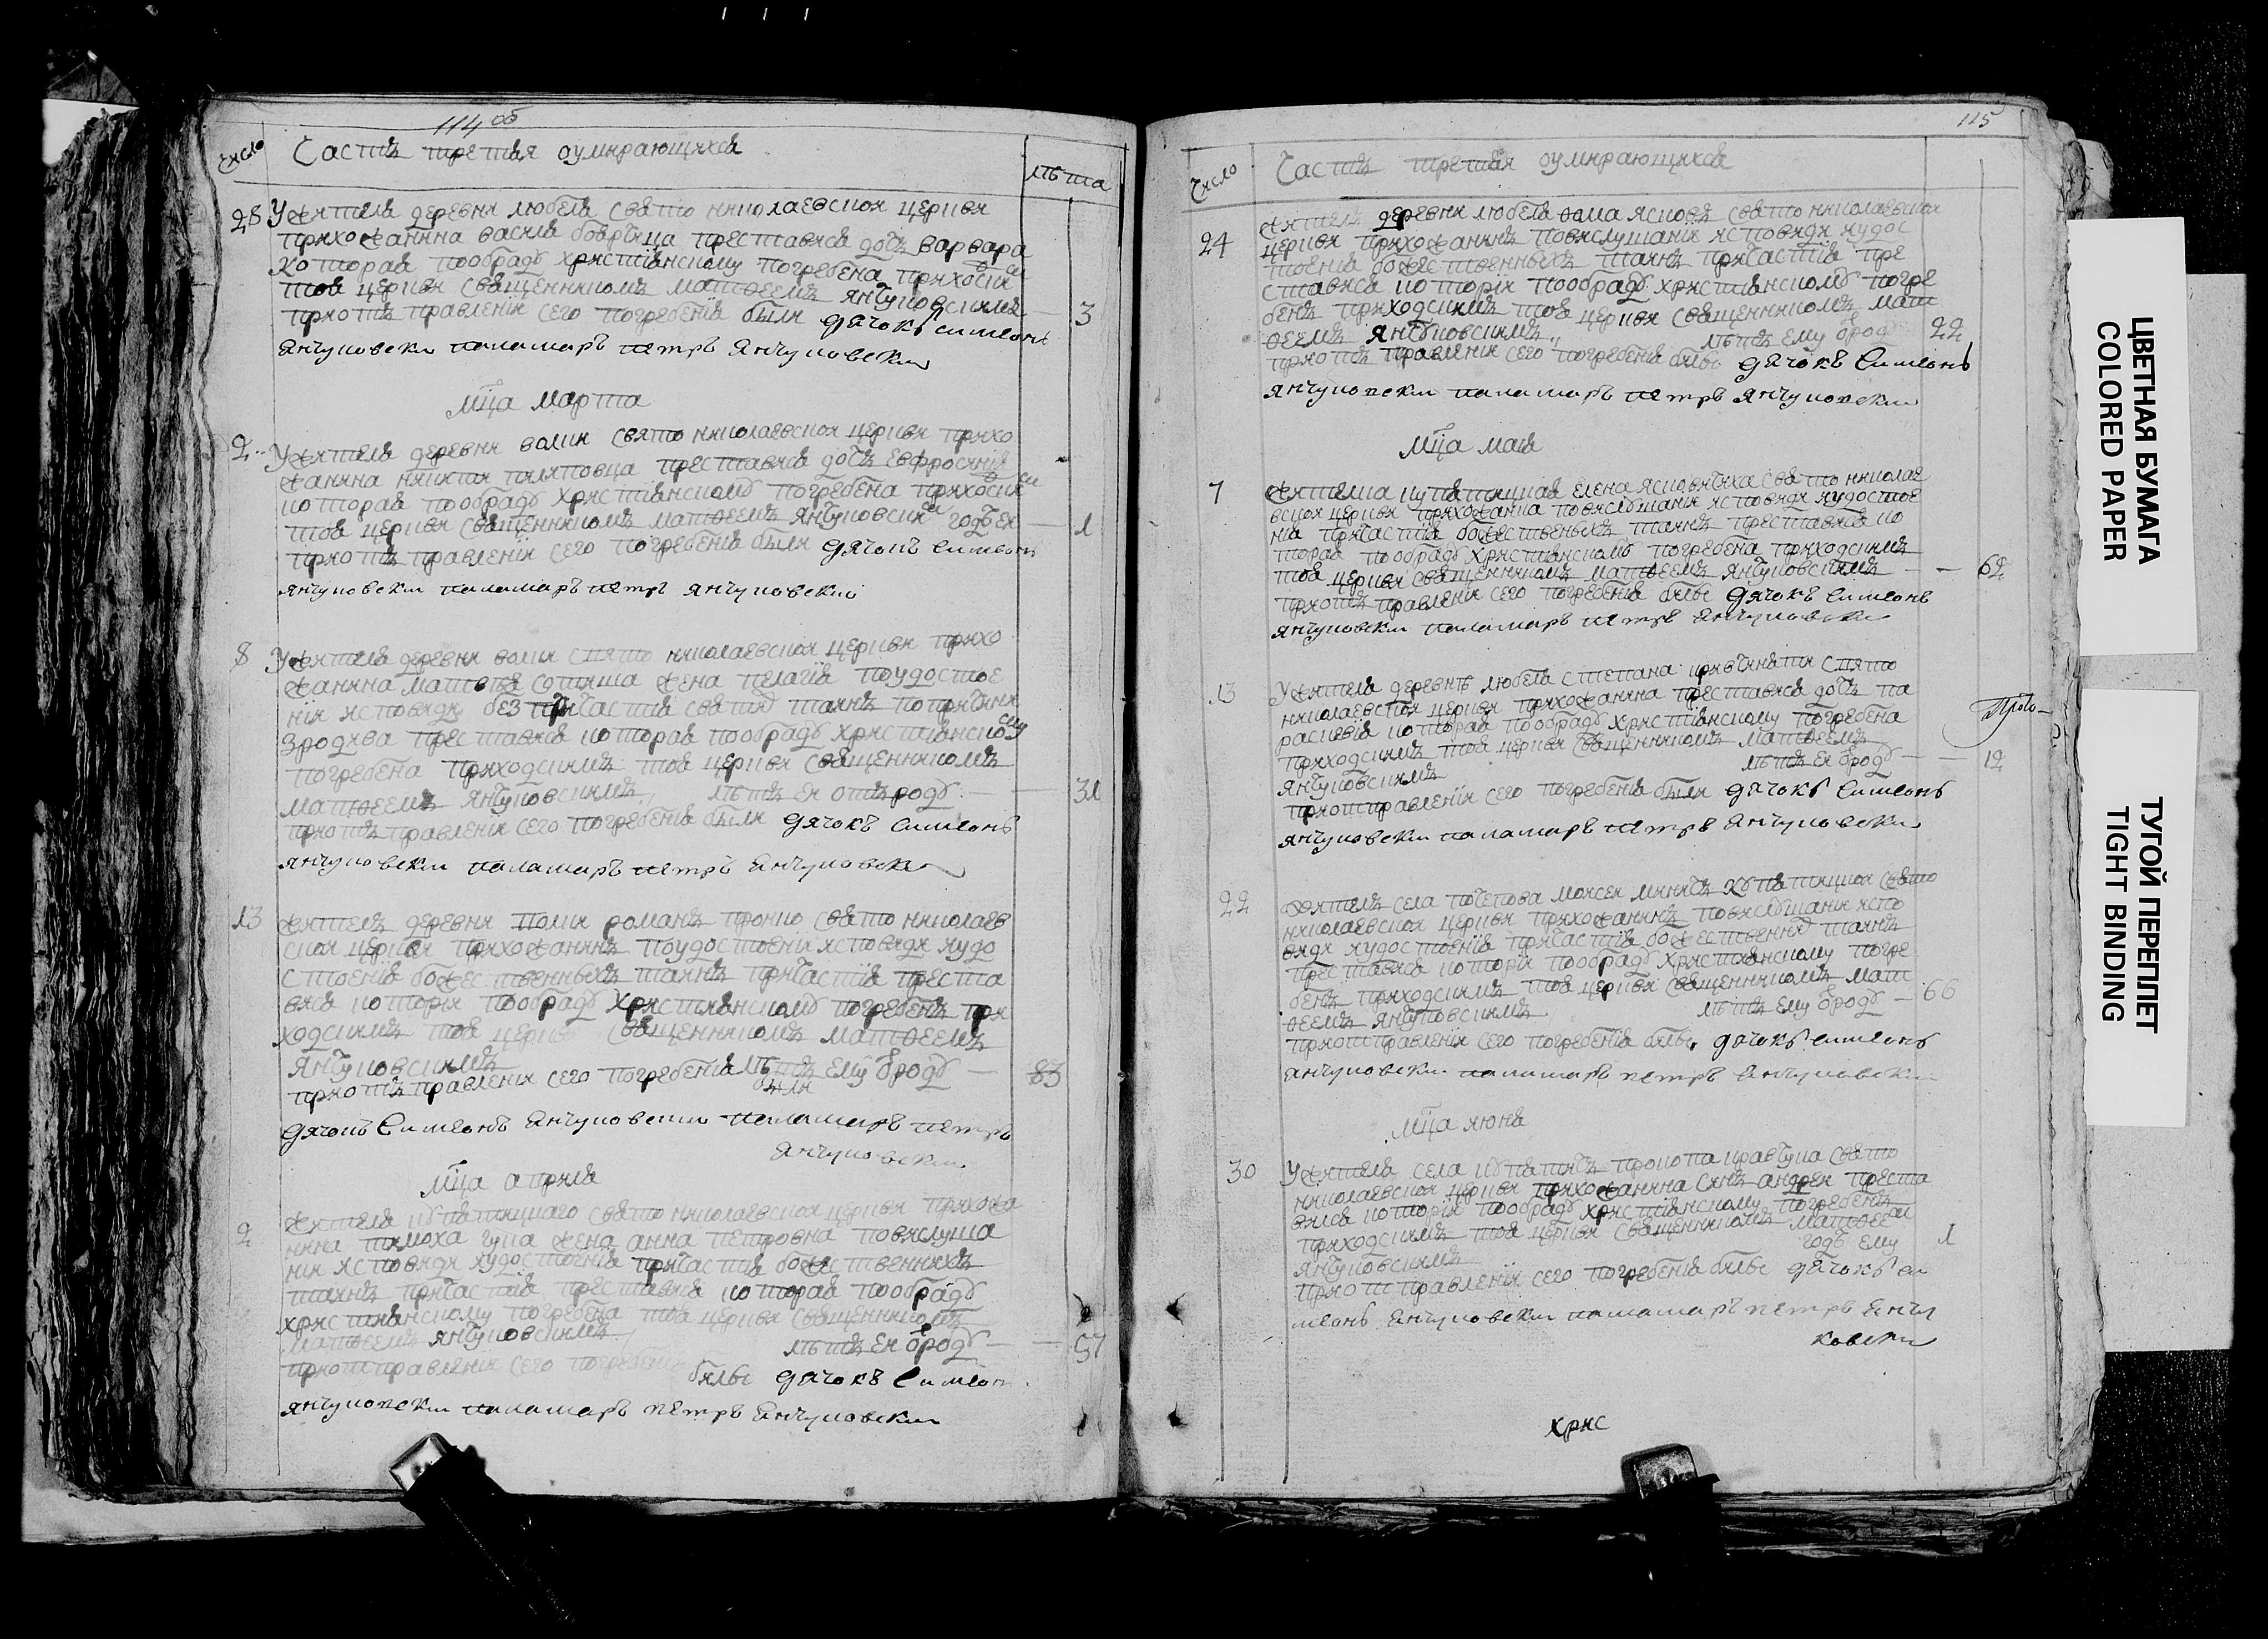 114 об
Число
Часть третая оумирающихся
лѣта
28 Ужителя деревни любеля свято николаевской церкви
прихожанина василя бобрыца преставися дочь варвара
которая пообряду христианскому погребена приходским
тоя церкви священником матфеемъ янчуковскимъ 3
приотъправлении сего погребения были дячокъ симеонъ
Янчуковски паламаръ петръ Янчуковски
мца марта
2 Ужителя деревни волки свято николаевской церкви прихо
жанина никити преставися дочь евфросиния
которая пообряду христианскому погребена приходским
тоя церкви священникомъ матфеемъ янчуковским годъ ея 1
приотъправлении сего погребения были дячокъ симеонъ
янчуковски паламаръ петръ янчуковский
8 Ужителя деревни волки свято николаевской церкви прихо
жанина матвея жена пелагия поудостое
нии исповеди без причастия святых таинъ попричини
зродива преставися которая пообряду христианскому
погребена приходскимъ тоя церкви священникомъ
матфеемъ янчуковскимъ лѣтъ ея отъ роду 31
приотъправлении сего погребения были дячокъ симеонъ
янчуковски паламаръ петръ Янчуковски
13 жителъ деревни волки романъ пронко свято николаев
ской церкви прихожанинъ поудостоении исповеди иудо
стоения божественныхъ таинъ причастия преста
вися которий пообряду христианскому погребенъ при
ходскимъ тоя церкви священникомъ матфеемъ
янчуковскимъ лѣтъ ему ѿроду 83
приотъправлении сего погребения были
дячокъ Симеонъ Янчуковски паламаръ петръ
Янчуковски
мца априля
2 жителя купятицкаго свято николаевской церкви прихожа
нина тимоха жена анна петровна повислуша
нии исповеди иудостоения причастия божественнихъ
таинъ причастия преставися которая пообряду
христианскому погребена тоя церкви священникомъ
матфеемъ янчуковскимъ лѣтъ ея ѿроду 57
приотправлении сего погребения билы дячокъ Симеон
янчуковски паламаръ петръ Янчуковски
115
Число
Часть третая оумирающихся
24 жителъ деревни любеля фома свято николаевской
церкви прихожанинъ повислушании исповеди иудос
тоения божественныхъ таинъ причастия пре
ставися которий пообряду христианскому погре
бенъ приходскимъ тоя церкви священникомъ мат
феемъ янчуковскимъ лѣтъ ему ѿроду 22
приотъ правлении сего погребения билы дячокъ Симеонъ
янчуковски паламаръ петръ янчуковски
мца мая
7 жителка купятицкая елена свято николае
вской церкви прихожанка повислушании исповеди иудостое
ния причастия божественыхъ таинъ преставися ко
торая пообряду христианскому погребена приходскимъ
тоя церкви священникомъ матфеемъ янчуковскимъ 62
приотъ правлении сего погребения билы дячокъ симеонъ
янчуковски паламаръ петръ Янчуковски
13 Ужителя деревнѣ любеля степана свято
николаевской церкви прихожанина преставися дочь па
раскевия которая пообряду христианскому погребена
приходскимъ тоя церкви священникомъ матфеемъ
янчуковскимъ лѣтъ ея ѿроду 12
приотправлении сего погребения были дячокъ Симеонъ
янчуковски паламаръ петръ Янчуковски
22 жителъ села моисей купятицкой свято
николаевской церкви прихожанинъ повислушании испо
веди иудостоении причастия божественых таинъ
преставися которий пообряду христианскому погре
бенъ приходскимъ тоя церкви священникомъ мат
феемъ янчуковскимъ лѣтъ ему ѿроду 66
приотправлении сего погребения билы дячокъ симеонъ
Янчуковски паламаръ петръ Янчуковски
мца июня
30 Ужителя села купятичъ прокопа кравчука свято
николаевской церкви прихожанина синъ андрей преста
вился которий пообряду христианскому погребенъ
приходскимъ тоя церкви священникомъ матфеем
янчуковскимъ годъ ему 1
приотправлении сего погребения билы дячокъ си
меонъ Янчуковски паламаръ петръ Янчу
ковски
хрис
ЦВЕТНАЯ БУМАГА
COLORED PAPER
ТУГОЙ ПЕРЕПЛЕТ
TIGHT BINDING